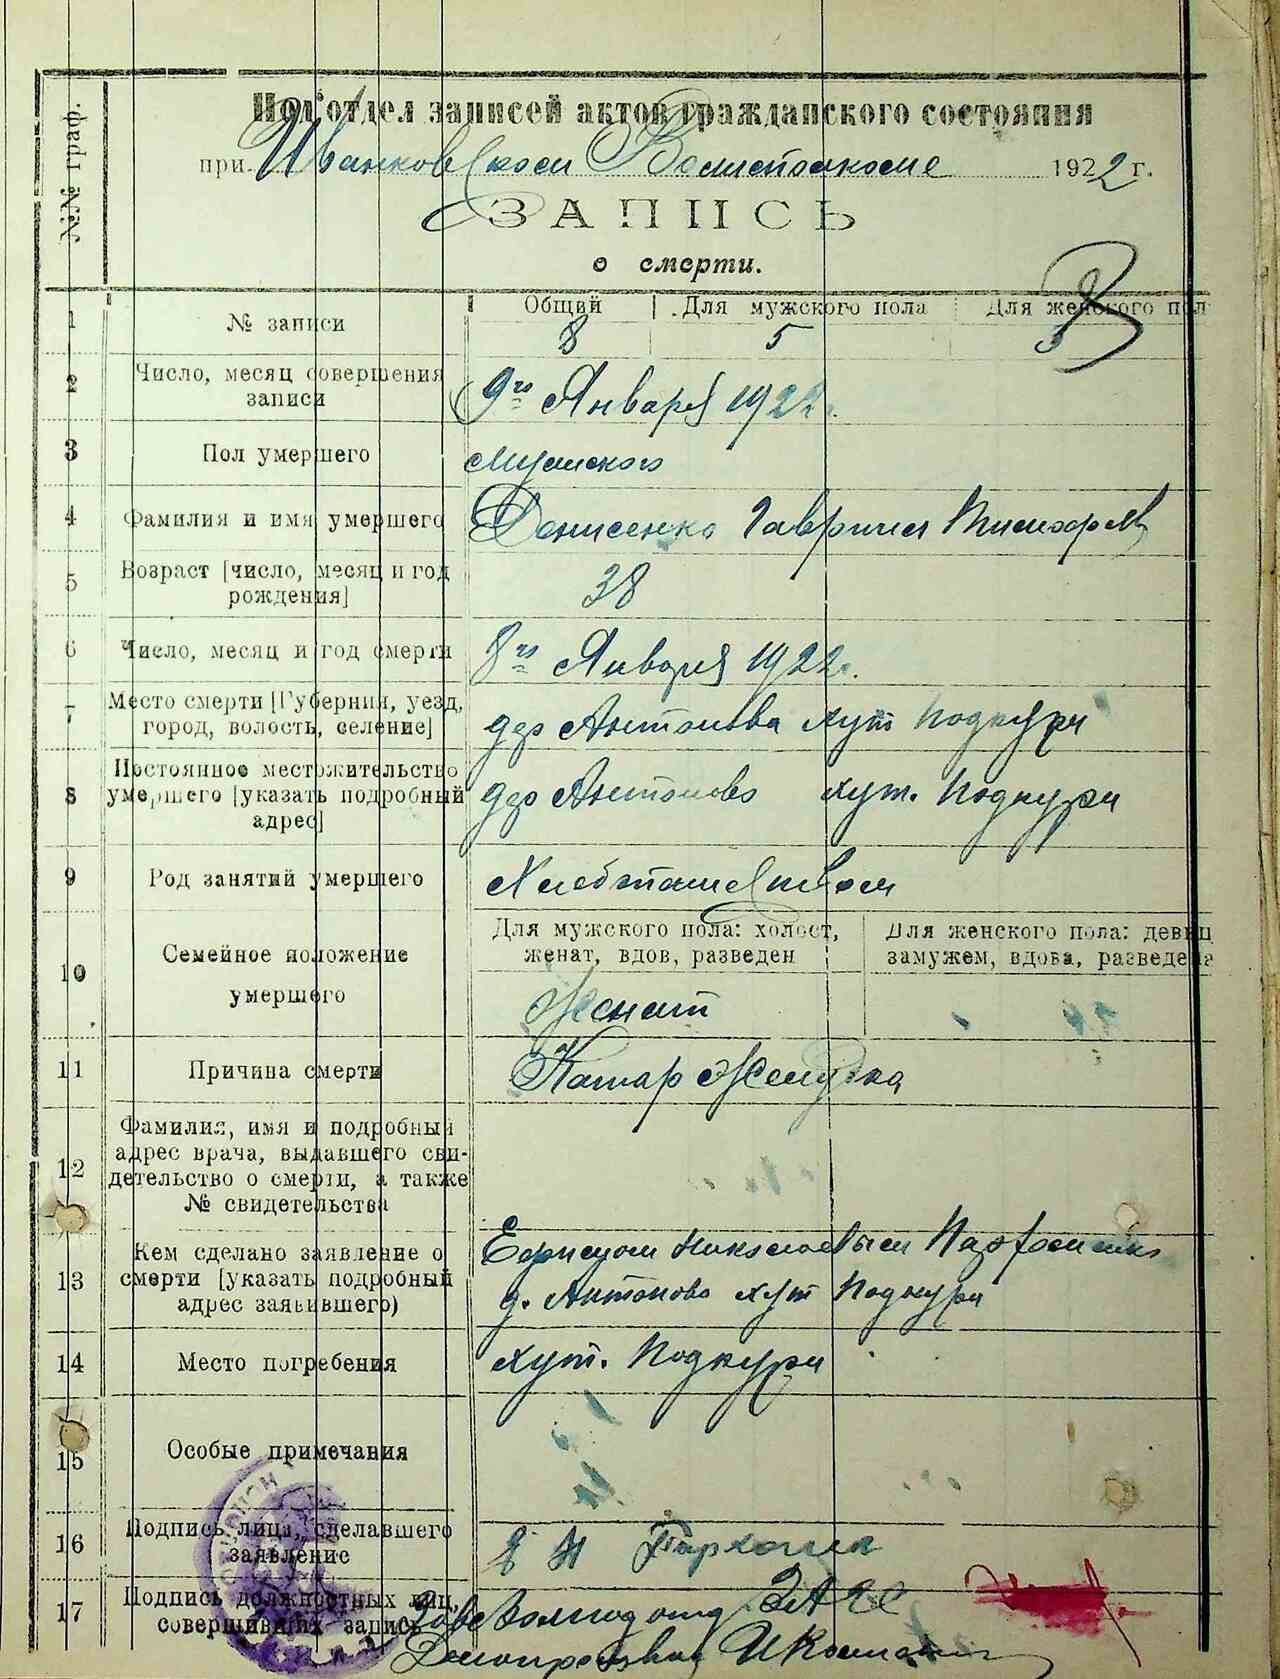 №№ граф.
Под'отдел записей актов гражданского состояния
при Иванковском Волисполкоме 1922 г.
ЗАПИСЬ
о смерти.
1 № записи Общий Для мужского пола Для женского пол
8 5 3
2 Число, месяц совершения записи 9го Января 1922г.
3 Пол умершего мужского
4 Фамилия и имя умершего Денисенко Гавриил
5 Возраст [число, месяц и год рождения] 38
6 Число, месяц и год смерти 8го Января 1922г.
7 Место смерти [Губерния, уезд, город, волость, селение] дер Антонова хут Подкури
8 Постоянное местожительство умершего [указать подробный адрес] дер Антоново хут. Подкури
9 Род занятий умершего Хлебопашеством
10 Семейное положение умершего Для мужского пола: холост, женат, вдов, разведен Для женского пола: девиц замужем, вдова, разведена
Женат
11 Причина смерти Катар Желудка
12 Фамилия, имя и подробный адрес врача, выдавшего свидетельство о смерти, а также № свидетельства
13 Кем сделано заявление о смерти [указать подробный адрес заявившего)
д. Антоново хут Подкури
14 Место погребения хут. Подкури
15 Особые примечания
16 Подпись лица, сделавшего заявление Е Н
17 Подпись должностных лиц, совершивших запись ЗАГС